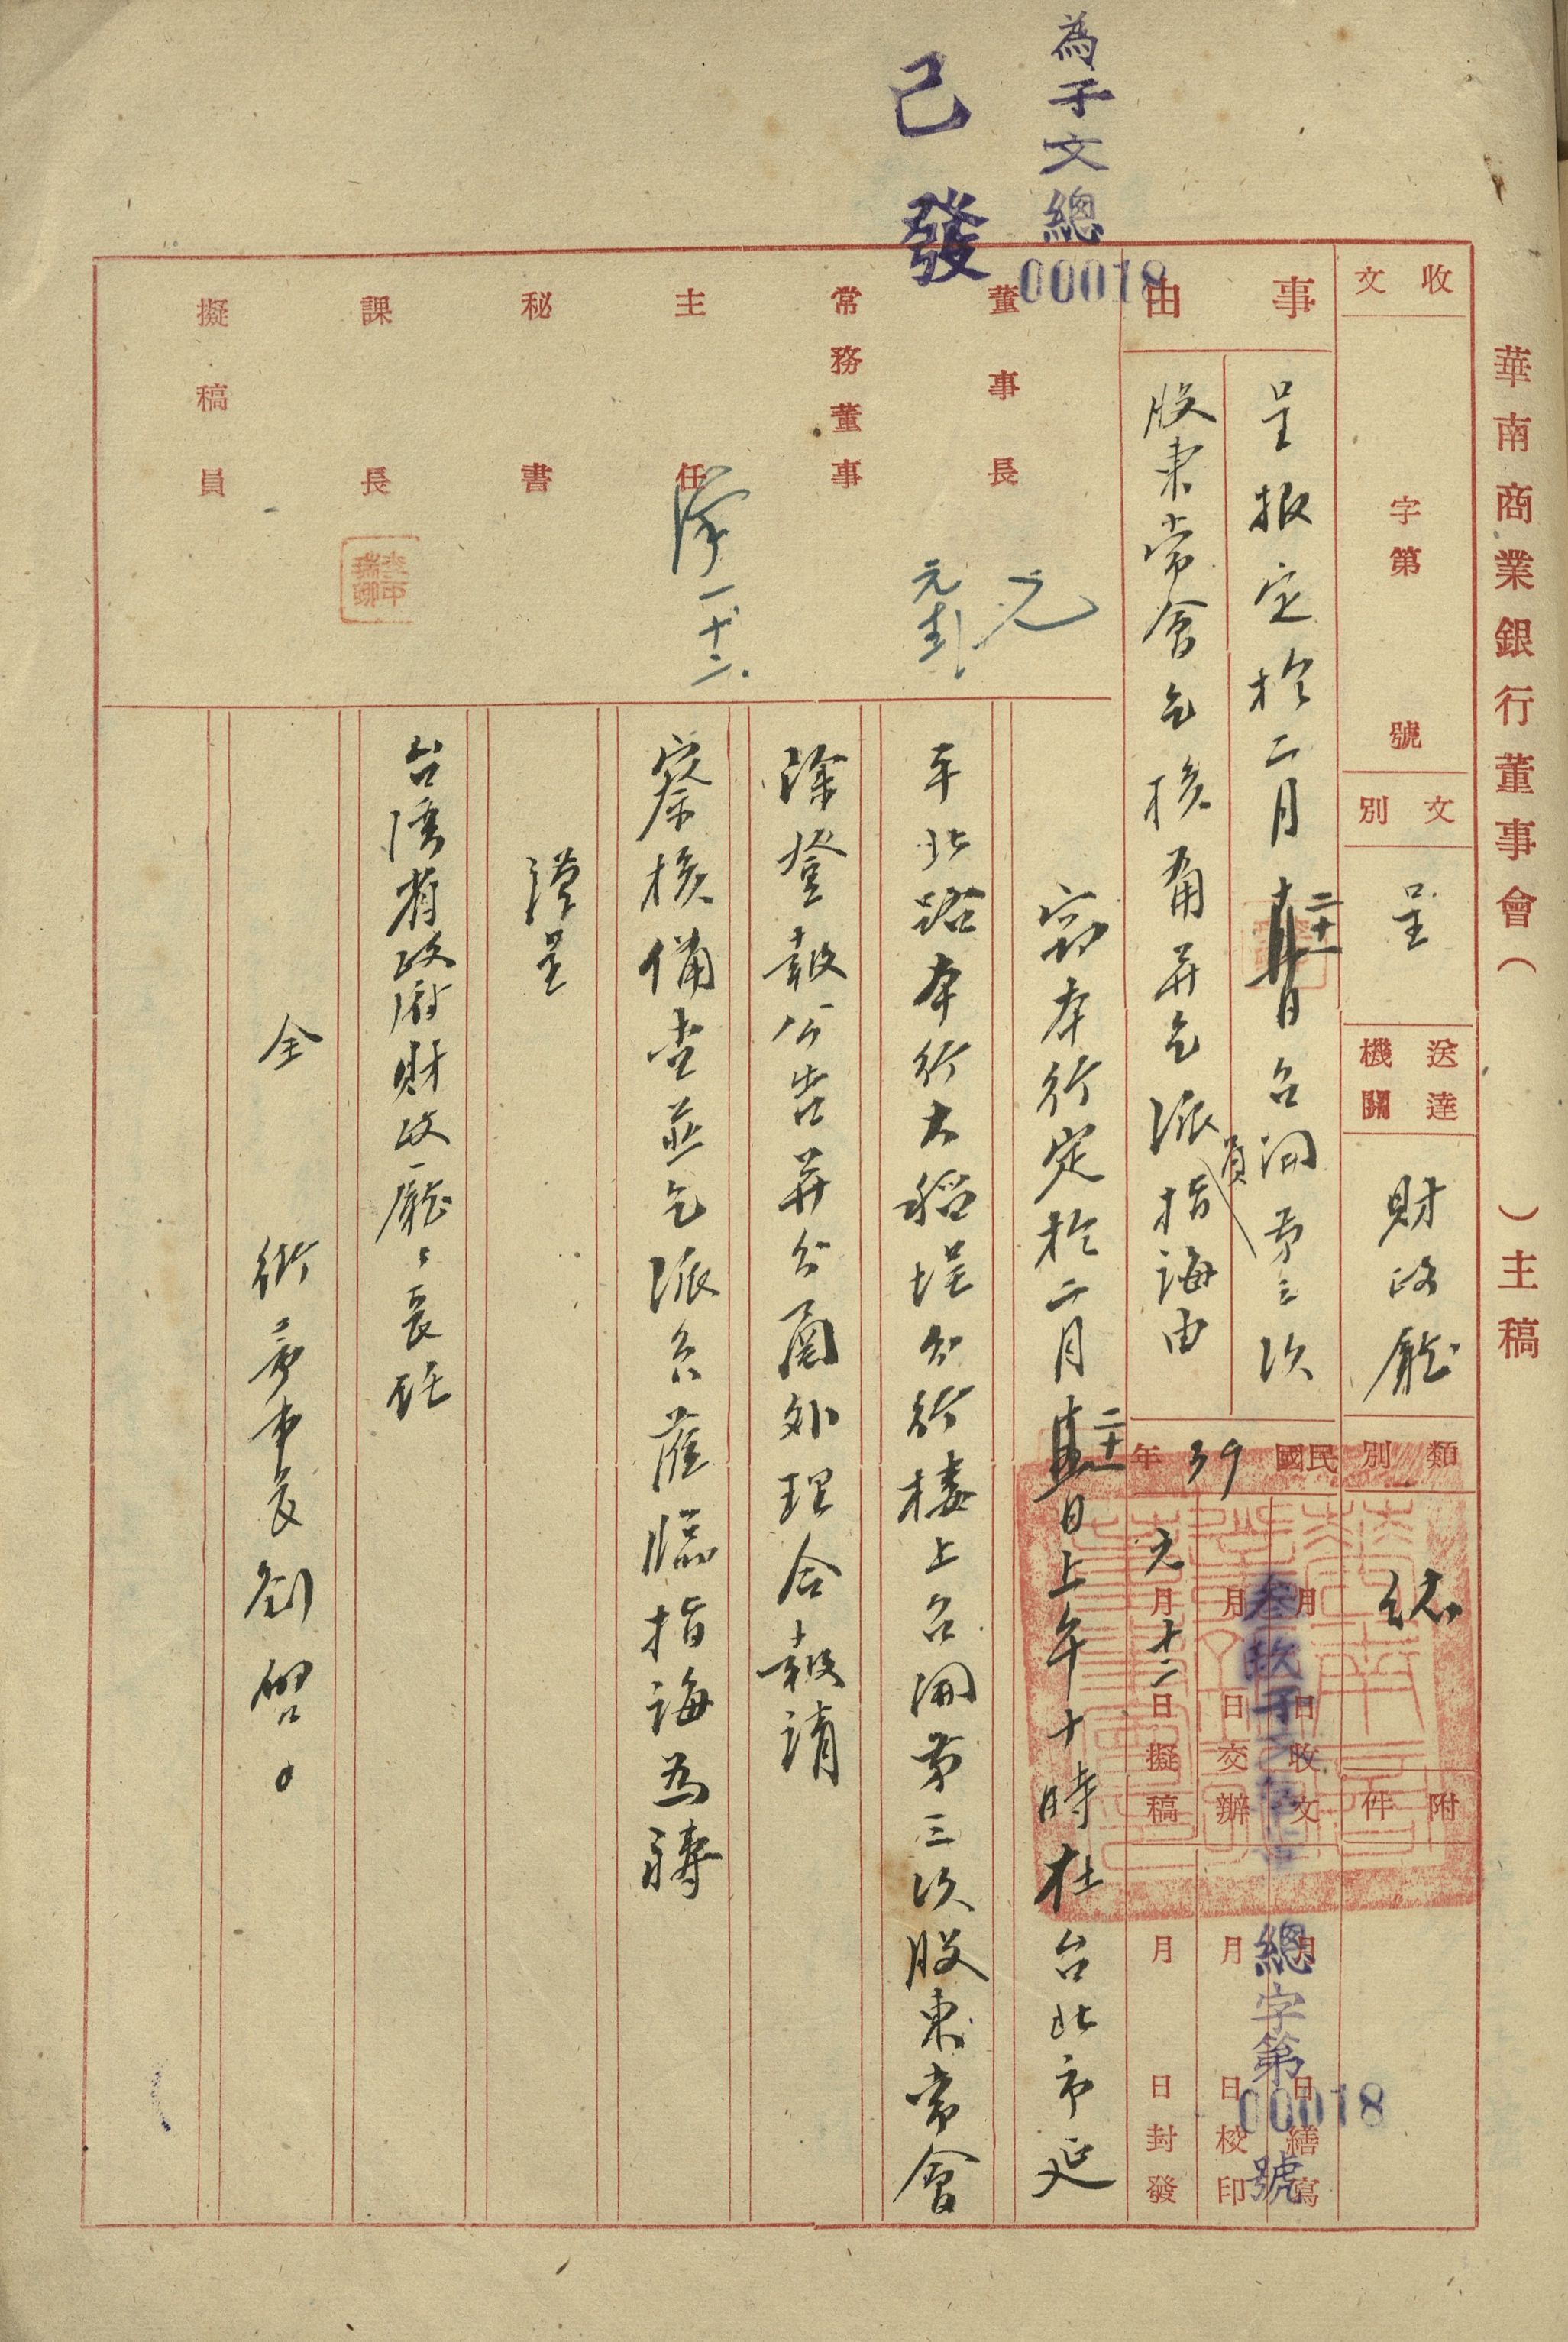 為子文總
00018
已發
華南商業銀行董事會（　　）主稿
收文　字第　號
文別　呈
送達機關　財政廳
類別
附件
事由
呈报定於二月二十一日召開第三次
股東常會乞核備并乞派員指誨由
民國39年
月　日收文
月　日交辦
元月十二日擬稿
月　日繕寫
月　日校印
月　日封發
總字第00018號
董事長
常務董事
主任
秘書
課長
擬稿員
元
一、十二.
竊本行定於二月二十一日上午十時在台北市延
平北路本行大稻埕分行楼上召開第三次股東常會
除登報公告并分函外理合報請
察核備查並乞派員蒞臨指誨為禱
謹呈
台湾省政府財政廳々長任
全銜董事長劉啓〇